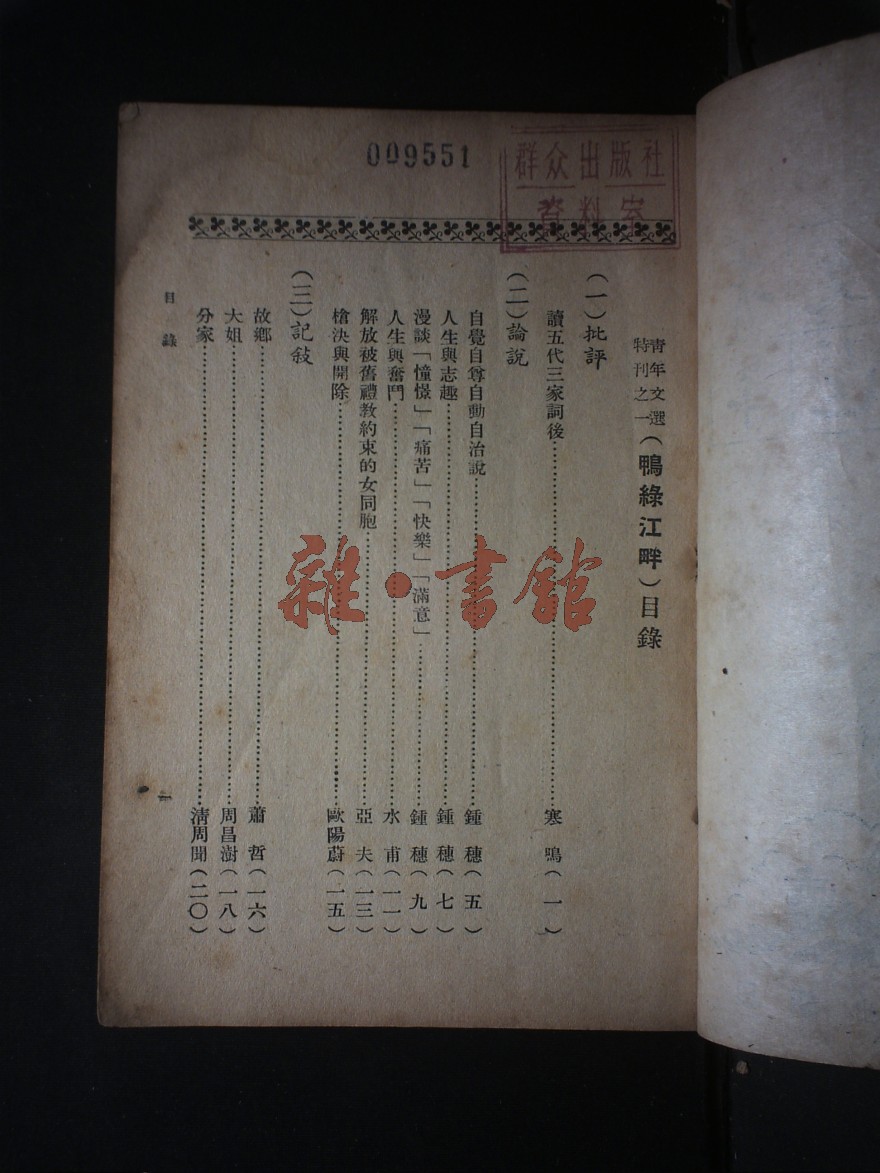 009551
群众出版社
資料室
青年文選
特刊之一
(鴨綠江畔)目錄
(一)批評
讀五代三家詞後……寒鳴(一)
(二)論說
自覺自尊自動自治說……鍾穗(五)
人生與志趣……鍾穗(七)
漫談「憧憬」「痛苦」「快樂」「滿意」……鍾穗(九)
人生與奮鬥……水甫(一一)
解放被舊禮教約束的女同胞……亞夫(一三)
槍決與開除……歐陽蔚(一五)
(三)記敍
故鄉……蕭哲(一六)
大姐……周昌澍(一八)
分家……清周聞(二〇)
目錄
一
雜·書館